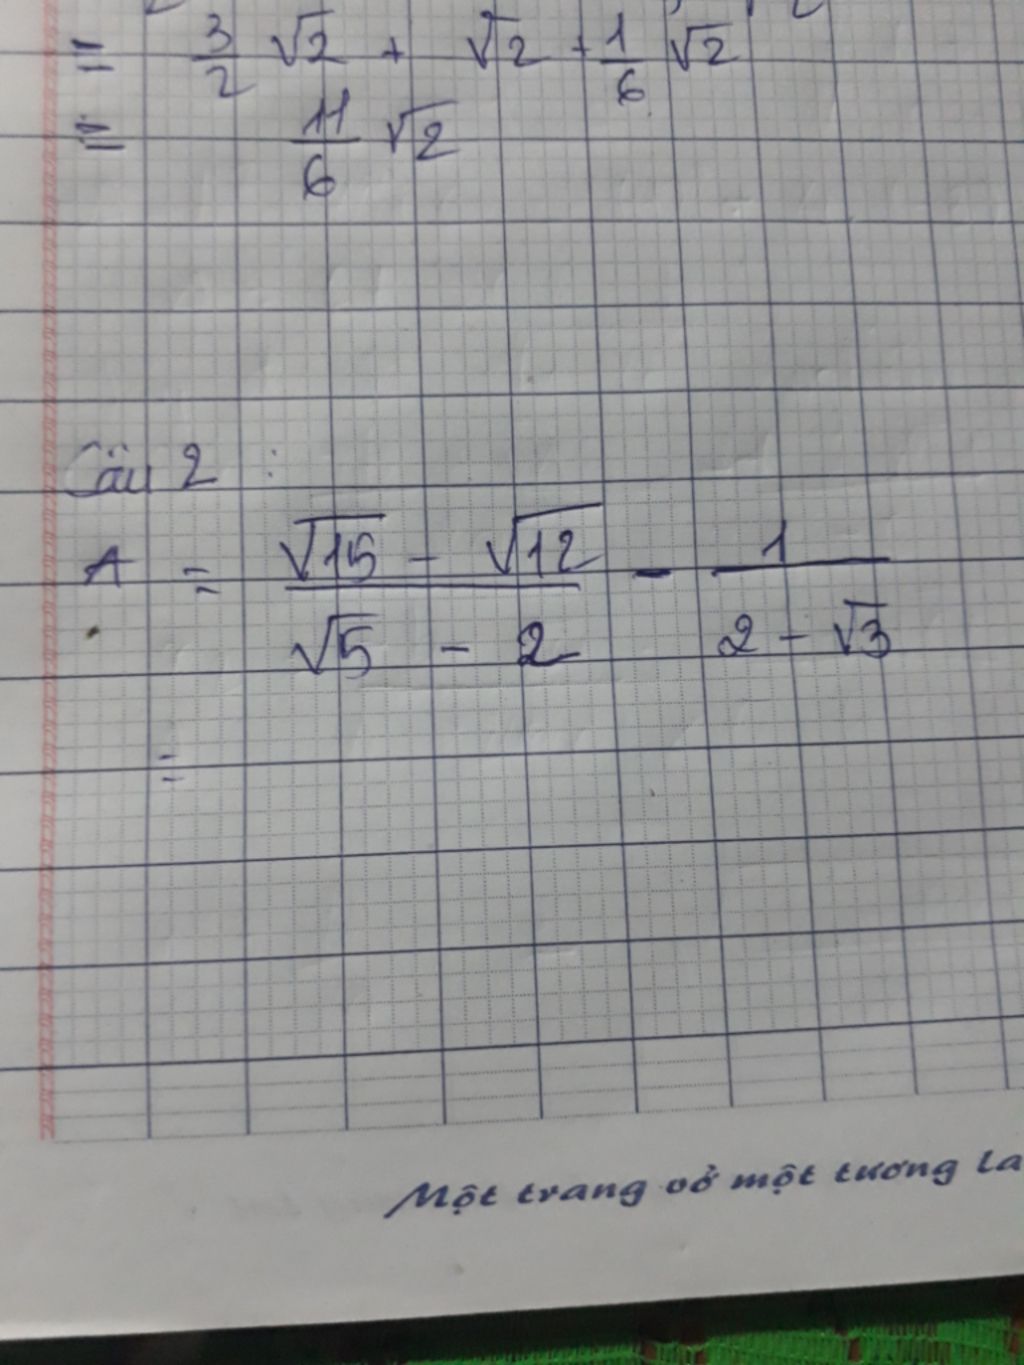 = 3/2 √2 + √2 + 1/6 √2
= 11/6 √2
Câu 2 :
A = (√15 - √12)/(√5 - 2) - 1/(2 - √3)
=
Một trang vở một tương la